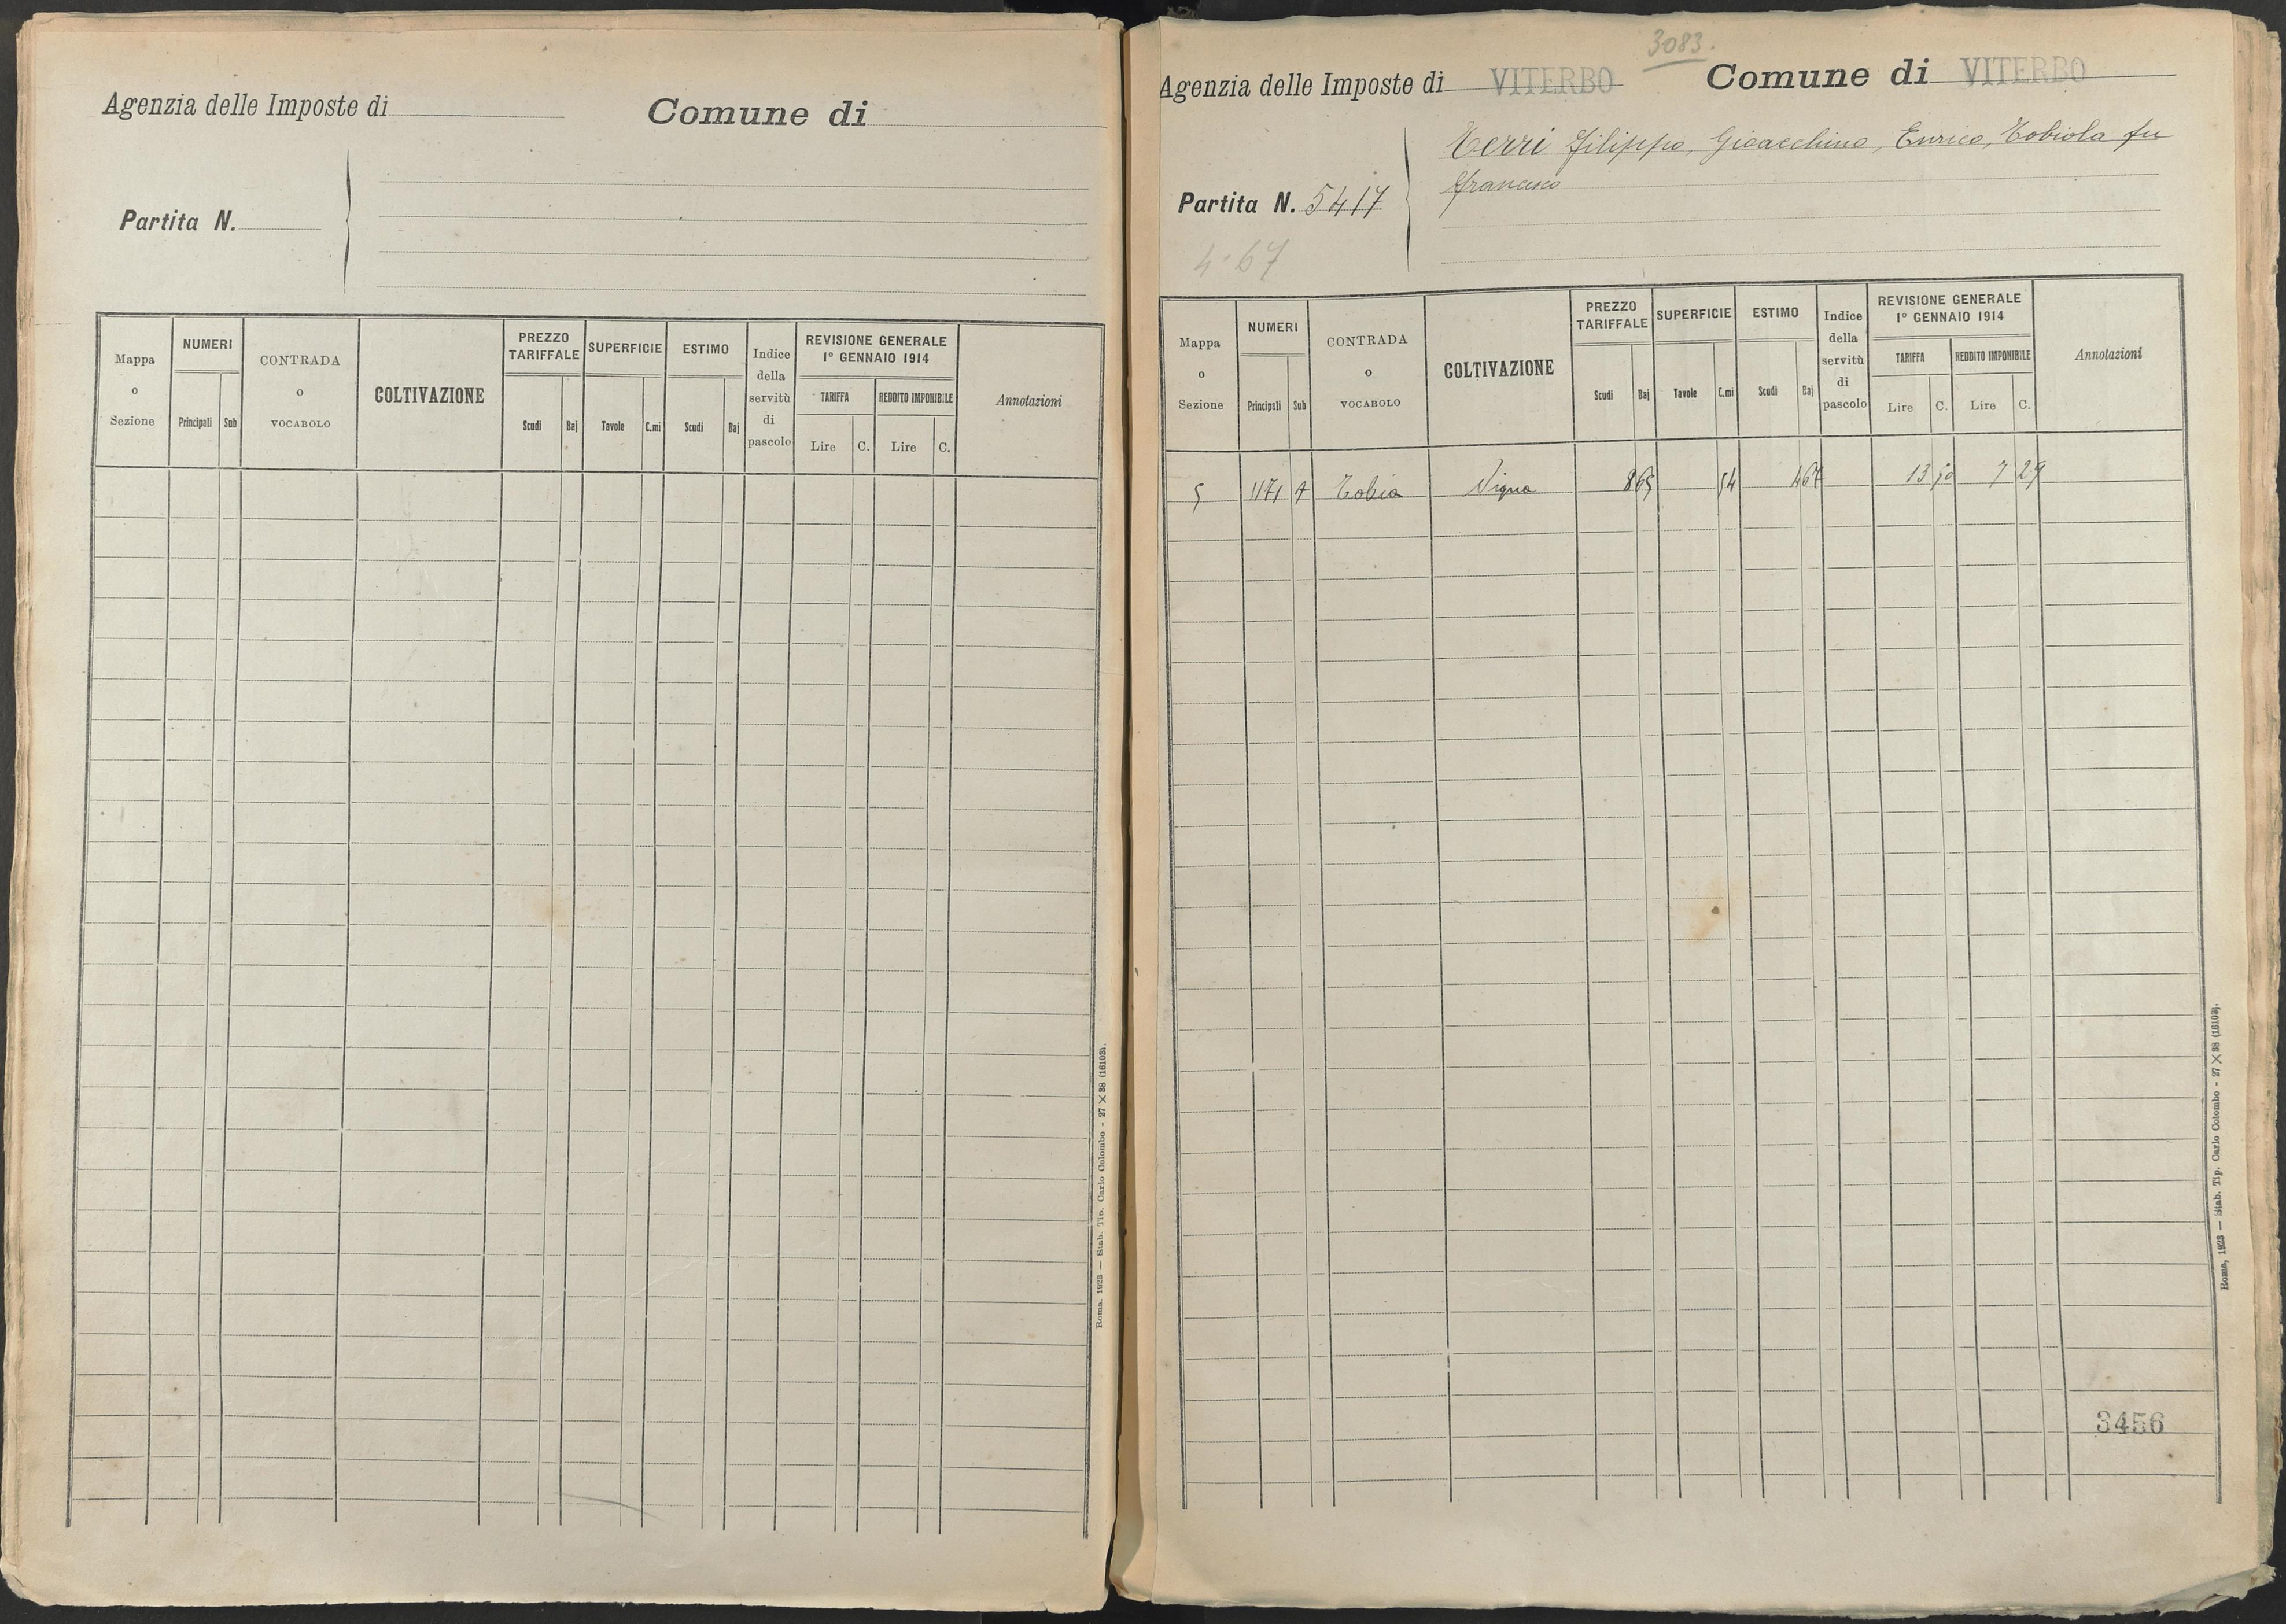 Agenzia delle Imposte di
Comune di
Partita N.
Mappa o Sezione
NUMERI
Principali Sub
CONTRADA o VOCABOLO
COLTIVAZIONE
PREZZO TARIFFALE
Scudi Baj
SUPERFICIE
Tavole C.mi
ESTIMO
Scudi Baj
Indice della servitù di pascolo
REVISIONE GENERALE
1º GENNAIO 1914
TARIFFA
Lire C.
REDDITO IMPONIBILE
Lire C.
Annotazioni
Roma, 1923 — Stab. Tip. Carlo Colombo - 27 X 38 (16103).
3083.
Agenzia delle Imposte di VITERBO
Comune di VITERBO
Terri Filippo, Gioacchino, Enrico, Tobiola fu
Francesco
Partita N. 5417
4.67
Mappa o Sezione
NUMERI
Principali Sub
CONTRADA o VOCABOLO
COLTIVAZIONE
PREZZO TARIFFALE
Scudi Baj
SUPERFICIE
Tavole C.mi
ESTIMO
Scudi Baj
Indice della servitù di pascolo
REVISIONE GENERALE
1º GENNAIO 1914
TARIFFA
Lire C.
REDDITO IMPONIBILE
Lire C.
Annotazioni
5 1171 Tobia Vigna 865 54 467 13 50 7 29
3456
Roma, 1923 — Stab. Tip. Carlo Colombo - 27 X 38 (16103).